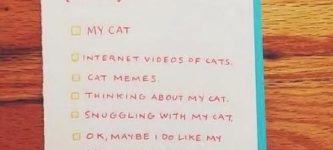 MY CAT
INTERNET VIDEOS OF CATS.
CAT MEMES.
THINKING ABOUT MY CAT.
SNUGGLING WITH MY CAT.
OK, MAYBE I DO LIKE MY